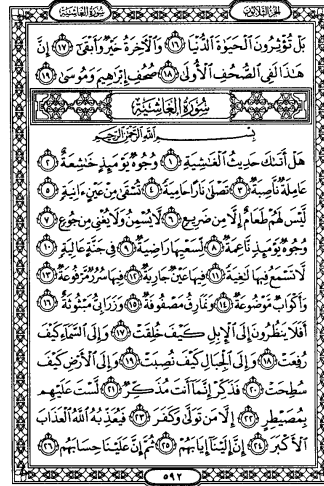 سُورَةُ الغَاشِيَةِ الجُزْءُ الثَّلَاثُونَ
بَلْ تُؤْثِرُونَ الْحَيَوٰةَ الدُّنْيَا ١٦ وَالْآخِرَةُ خَيْرٌ وَأَبْقَىٰٓ ١٧ إِنَّ
هَٰذَا لَفِى الصُّحُفِ الْأُولَىٰ ١٨ صُحُفِ إِبْرَٰهِيمَ وَمُوسَىٰ ١٩
سُورَةُ الغَاشِيَةِ
بِسْمِ اللَّهِ الرَّحْمَٰنِ الرَّحِيمِ
هَلْ أَتَىٰكَ حَدِيثُ الْغَٰشِيَةِ ١ وُجُوهٌ يَوْمَئِذٍ خَٰشِعَةٌ ٢
عَامِلَةٌ نَّاصِبَةٌ ٣ تَصْلَىٰ نَارًا حَامِيَةً ٤ تُسْقَىٰ مِنْ عَيْنٍ ءَانِيَةٍ ٥
لَّيْسَ لَهُمْ طَعَامٌ إِلَّا مِن ضَرِيعٍ ٦ لَّا يُسْمِنُ وَلَا يُغْنِى مِن جُوعٍ ٧
وُجُوهٌ يَوْمَئِذٍ نَّاعِمَةٌ ٨ لِّسَعْيِهَا رَاضِيَةٌ ٩ فِى جَنَّةٍ عَالِيَةٍ ١٠
لَّا تَسْمَعُ فِيهَا لَٰغِيَةً ١١ فِيهَا عَيْنٌ جَارِيَةٌ ١٢ فِيهَا سُرُرٌ مَّرْفُوعَةٌ ١٣
وَأَكْوَابٌ مَّوْضُوعَةٌ ١٤ وَنَمَارِقُ مَصْفُوفَةٌ ١٥ وَزَرَابِىُّ مَبْثُوثَةٌ ١٦
أَفَلَا يَنظُرُونَ إِلَى الْإِبِلِ كَيْفَ خُلِقَتْ ١٧ وَإِلَى السَّمَآءِ كَيْفَ
رُفِعَتْ ١٨ وَإِلَى الْجِبَالِ كَيْفَ نُصِبَتْ ١٩ وَإِلَى الْأَرْضِ كَيْفَ
سُطِحَتْ ٢٠ فَذَكِّرْ إِنَّمَآ أَنتَ مُذَكِّرٌ ٢١ لَّسْتَ عَلَيْهِم
بِمُصَيْطِرٍ ٢٢ إِلَّا مَن تَوَلَّىٰ وَكَفَرَ ٢٣ فَيُعَذِّبُهُ اللَّهُ الْعَذَابَ
الْأَكْبَرَ ٢٤ إِنَّ إِلَيْنَآ إِيَابَهُمْ ٢٥ ثُمَّ إِنَّ عَلَيْنَا حِسَابَهُم ٢٦
٥٩٢